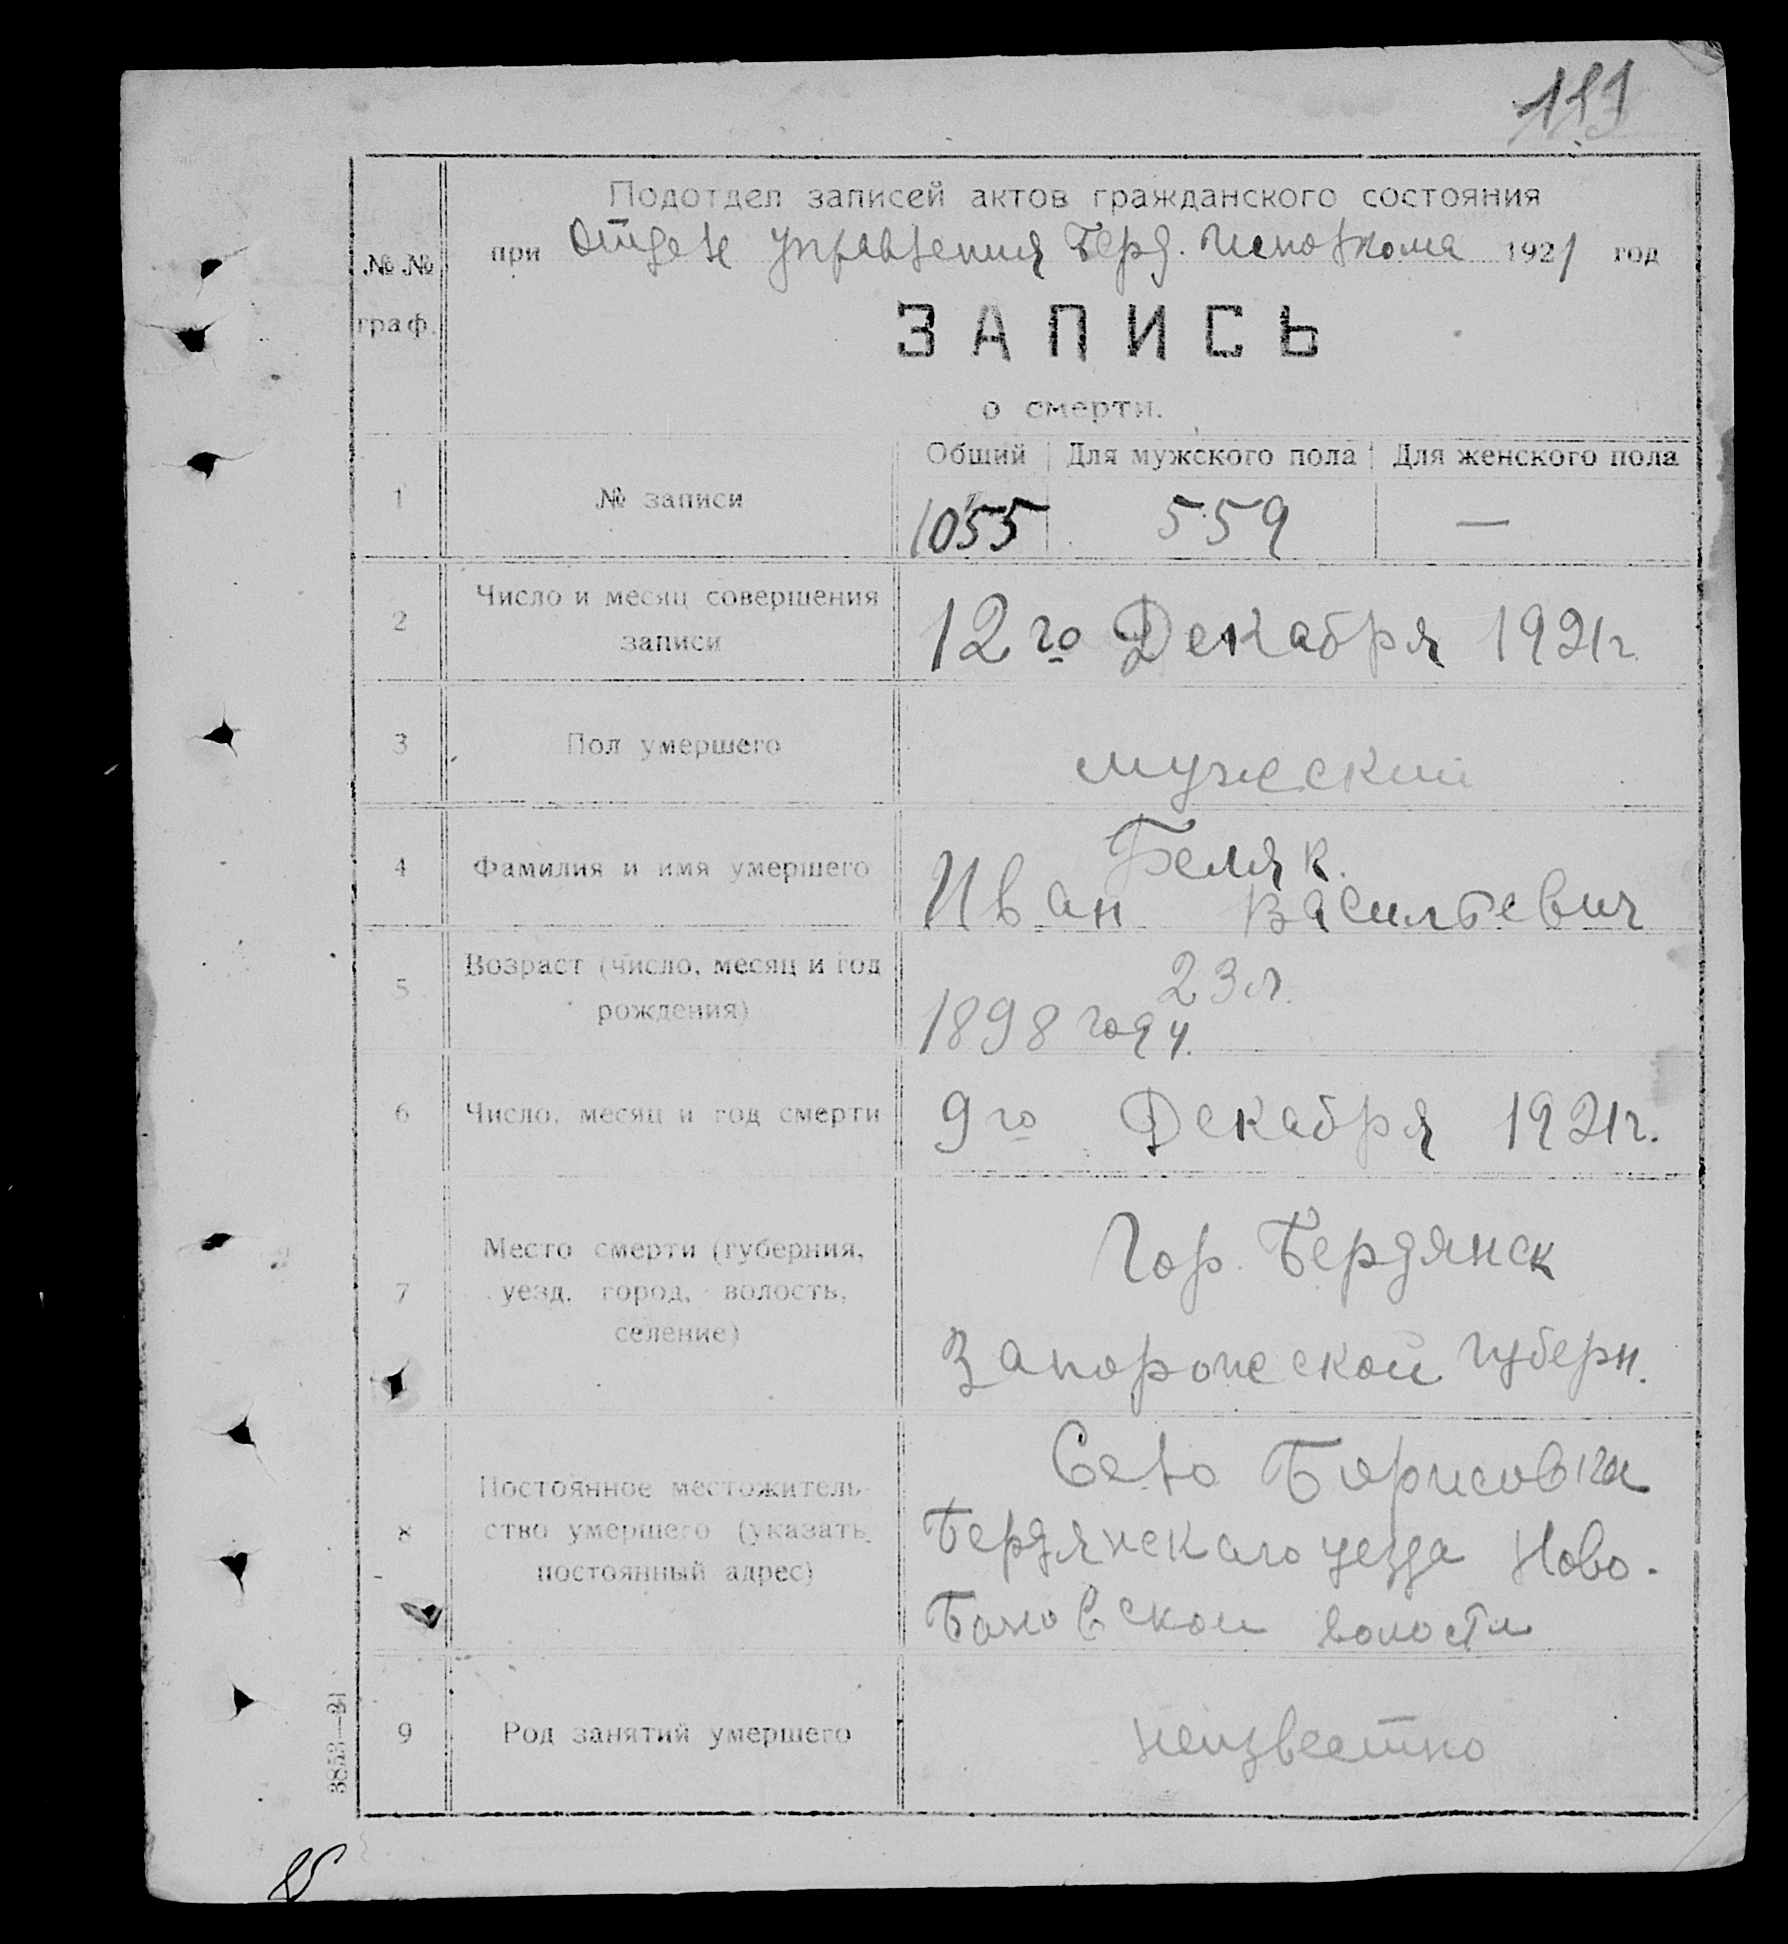 Подотдел записей актов гражданского состояния
при Отделе Управления Берд. Исполкома 1921 год
№ № граф.
ЗАПИСЬ
о смерти.
Общий Для мужского пола Для женского пола
1 № записи 1055 559 —
2 Число и месяц совершения
записи
12го Декабря 1921г.
3 Пол умершего мужеский
4 Фамилия и имя умершего
Беляк.
Иван Васильевич
5 Возраст (число, месяц и год
рождения)
23 л.
1898 году.
6 Число, месяц и год смерти 9го Декабря 1921г.
7 Место смерти (губерния,
уезд, город, волость,
селение)
Гор. Бердянск
Запорожской губерн.
8 Постоянное местожитель-
ство умершего (указать
постоянный адрес)
Село Борисовка
Бердянскаго уезда Ново-
Бановской волости
9 Род занятий умершего неизвестно
3853—21